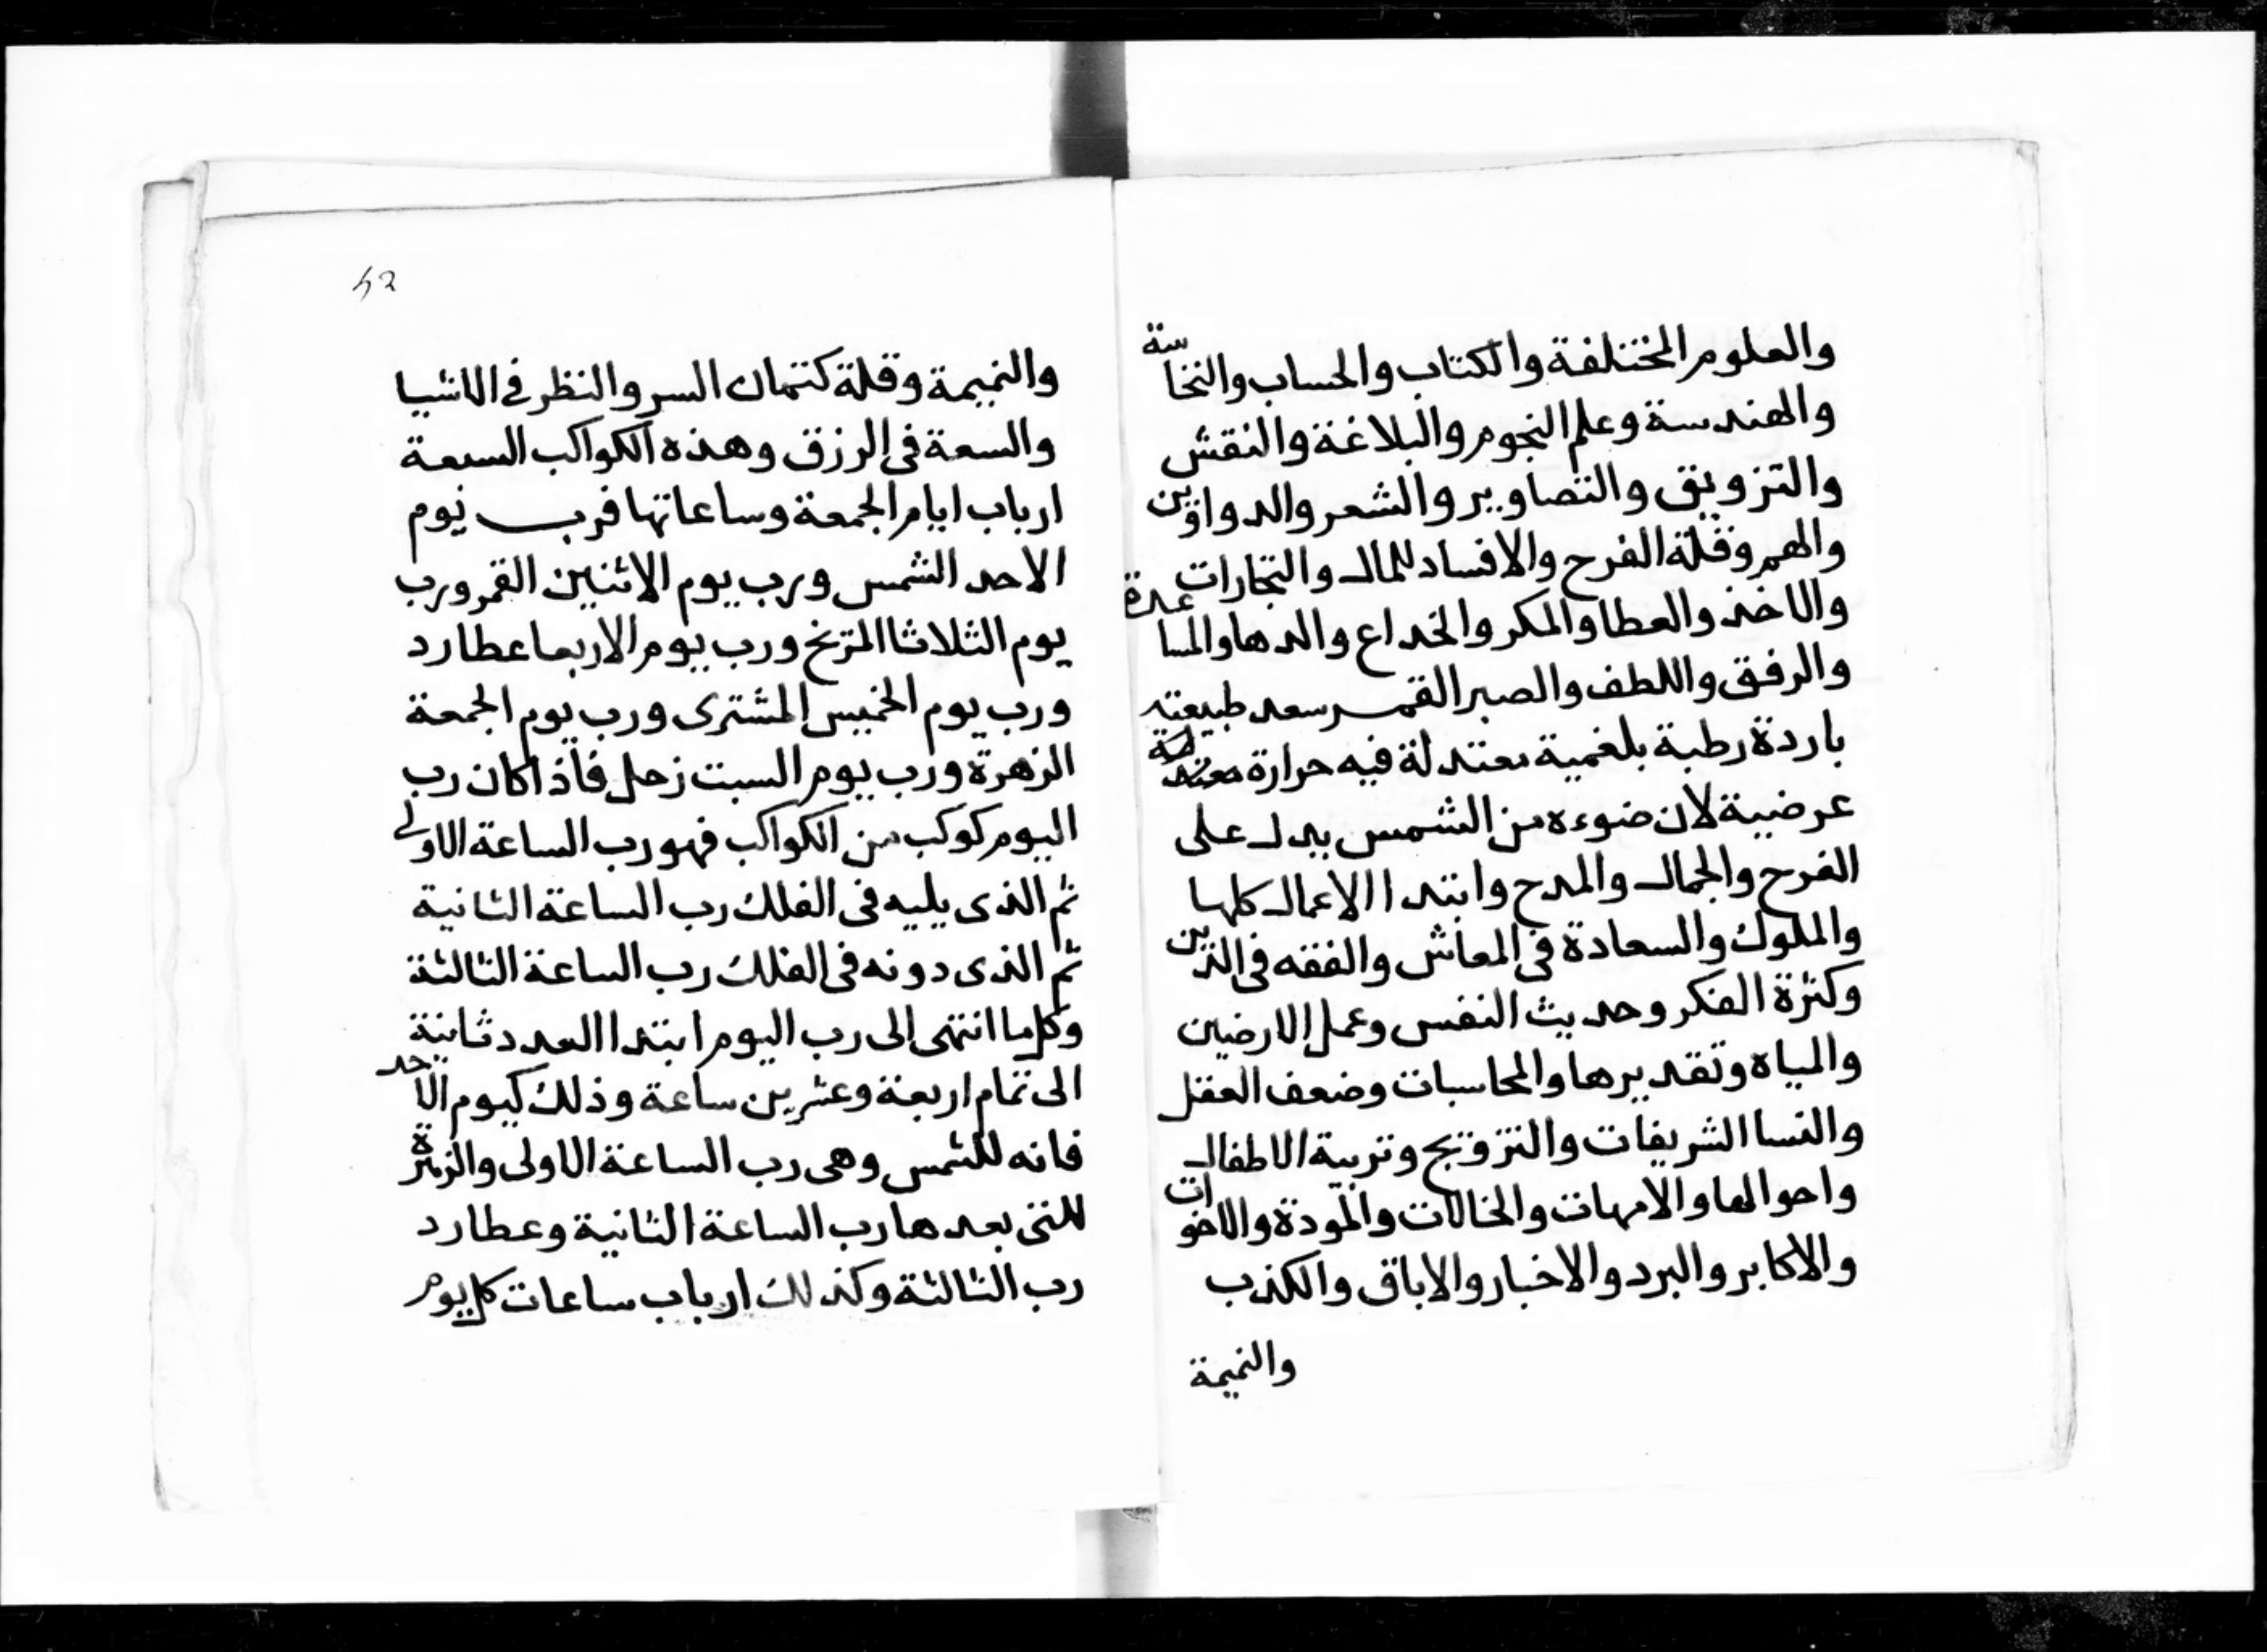 والعلوم المختلفة والكتاب والحساب والنخاسة
والهندسة وعلم النجوم والبلاغة والنقش
والتزويق والتصاوير والشعر والدواوين
والهم وقلة الفرح والافساد للمال والتجارات
والاخذ والعطا والمكر والخداع والدها والمساعدة
والرفق واللطف والصبر القمر سعد طبيعته
باردة رطبة بلغمية معتدلة فيه حرارة
عرضية لان ضوءه من الشمس يدل على
الفرح والجمال والمدح وابتدا الاعمال كلها
والملوك والسعادة في المعاش والفقه في الدين
وكثرة الفكر وحديث النفس وعمل الارضين
والمياه وتقديرها والمحاسبات وضعف العقل
والنسا الشريفات والتزويج وتربية الاطفال
واحوالها والامهات والخالات والمودة والاخوات
والاكابر والبرد والاخبار والاباق والكذب
والنميمة
52
والنميمة وقلة كتمان السر والنظر في الاشيا
والسعة في الرزق وهذه الكواكب السبعة
ارباب ايام الجمعة وساعاتها فرب يوم
الاحد الشمس ورب يوم الاثنين القمر ورب
يوم الثلاثا المريخ ورب يوم الاربعا عطارد
ورب يوم الخميس المشترى ورب يوم الجمعة
الزهرة ورب يوم السبت زحل فاذا كان رب
اليوم كوكب من الكواكب فهو رب الساعة الاولى
ثم الذى يليه فى الفلك رب الساعة الثانية
ثم الذى دونه فى الفلك رب الساعة الثالثة
وكلما انتهى الى رب اليوم ابتدا العدد ثانية
الى تمام اربعة وعشرين ساعة وذلك كيوم الاحد
فانه للشمس وهى رب الساعة الاولى والزهرة
للتى بعدها رب الساعة الثانية وعطارد
رب الثالثة وكذلك ارباب ساعات كل يوم